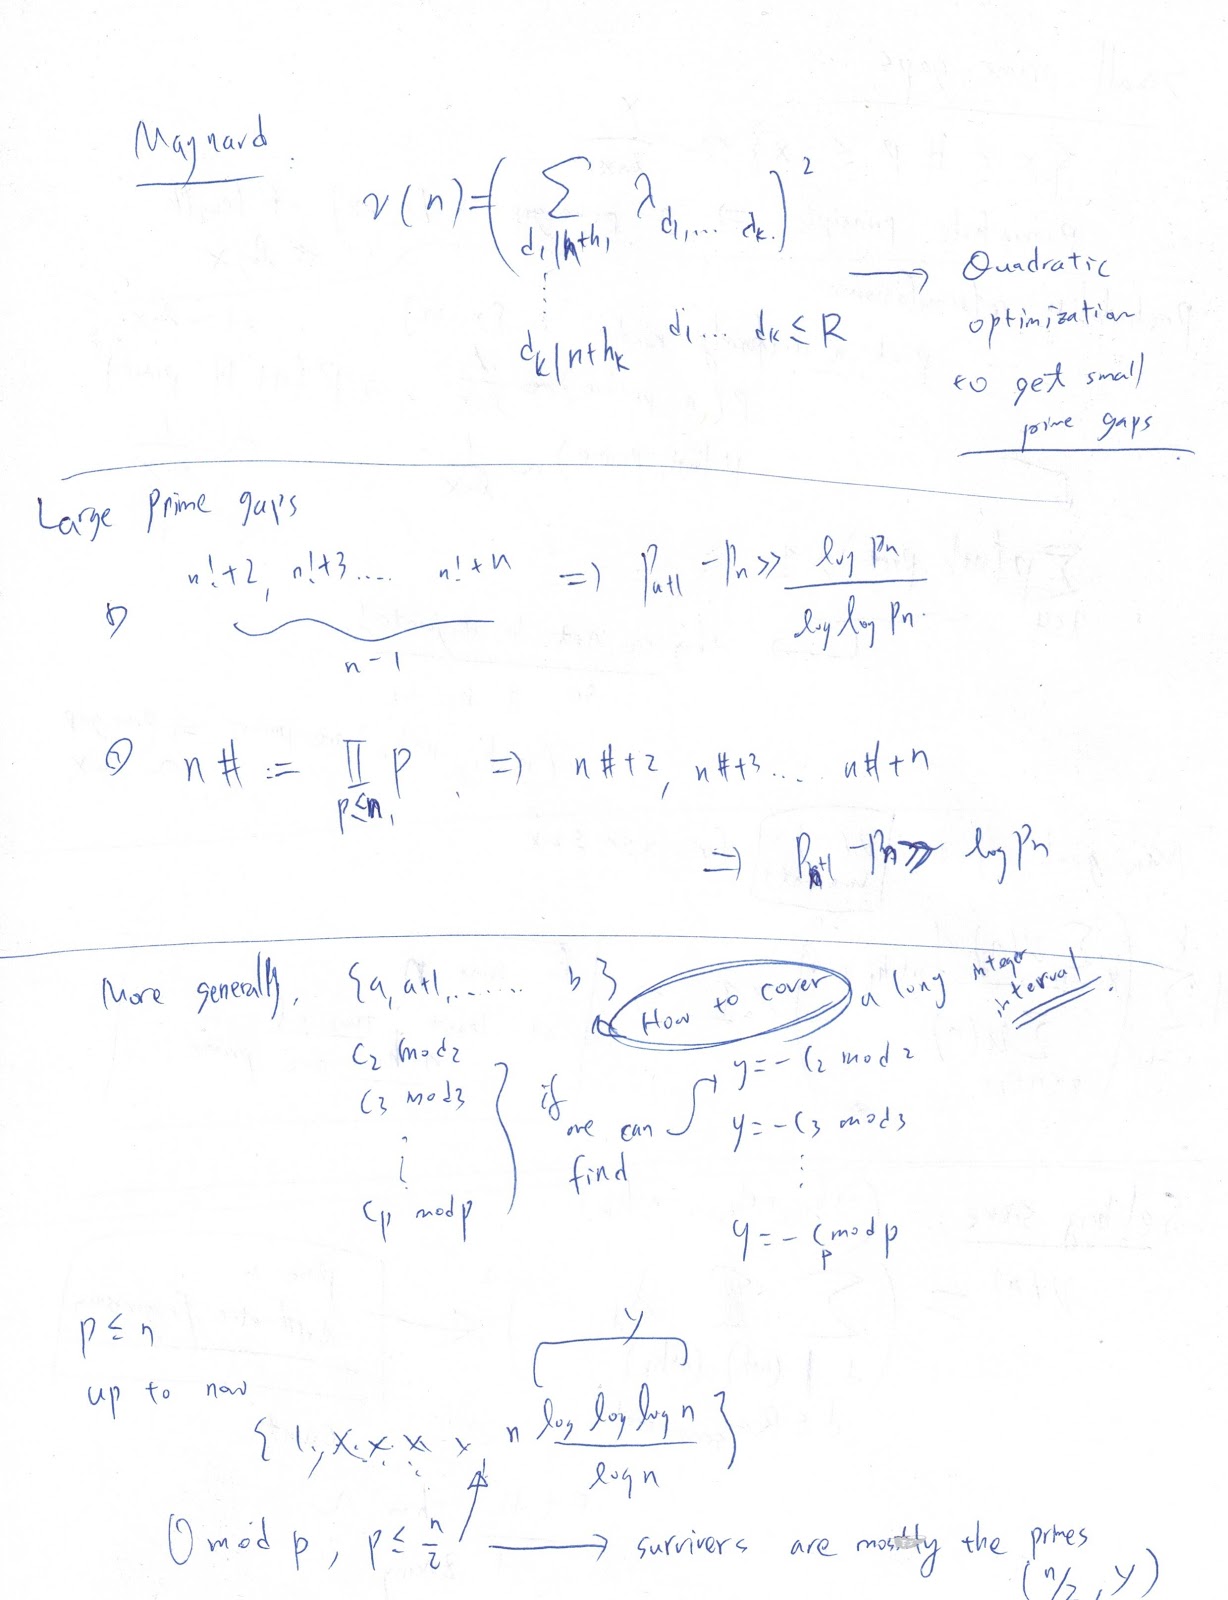 Maynard
ν(n) = ( ∑ λ_{d1,... dk.} )²
d1|n+h1
⋮
dk|n+hk d1... dk ≤ R
→ Quadratic
optimization
to get small
prime gaps
Large Prime gaps
① n!+2, n!+3.... n!+n ⇒ P_{n+1} - P_n ≫ log Pn / log log Pn.
n-1
② n# := ∏_{p≤n} p ⇒ n#+2, n#+3.... n#+n
⇒ P_{n+1} - P_n ≫ log Pn
More generally, {a, a+1, ....... b} How to cover a long integer interval.
C2 mod2
C3 mod3
⋮
Cp mod p
if
one can
find
y = -C2 mod 2
y = -C3 mod3
⋮
y = -Cp mod p
p ≤ n
up to now
y
{ 1, x. x. x x, n log log log n / log n }
0 mod p, p ≤ n/2 → survivers are mostly the primes
(n/2, y)